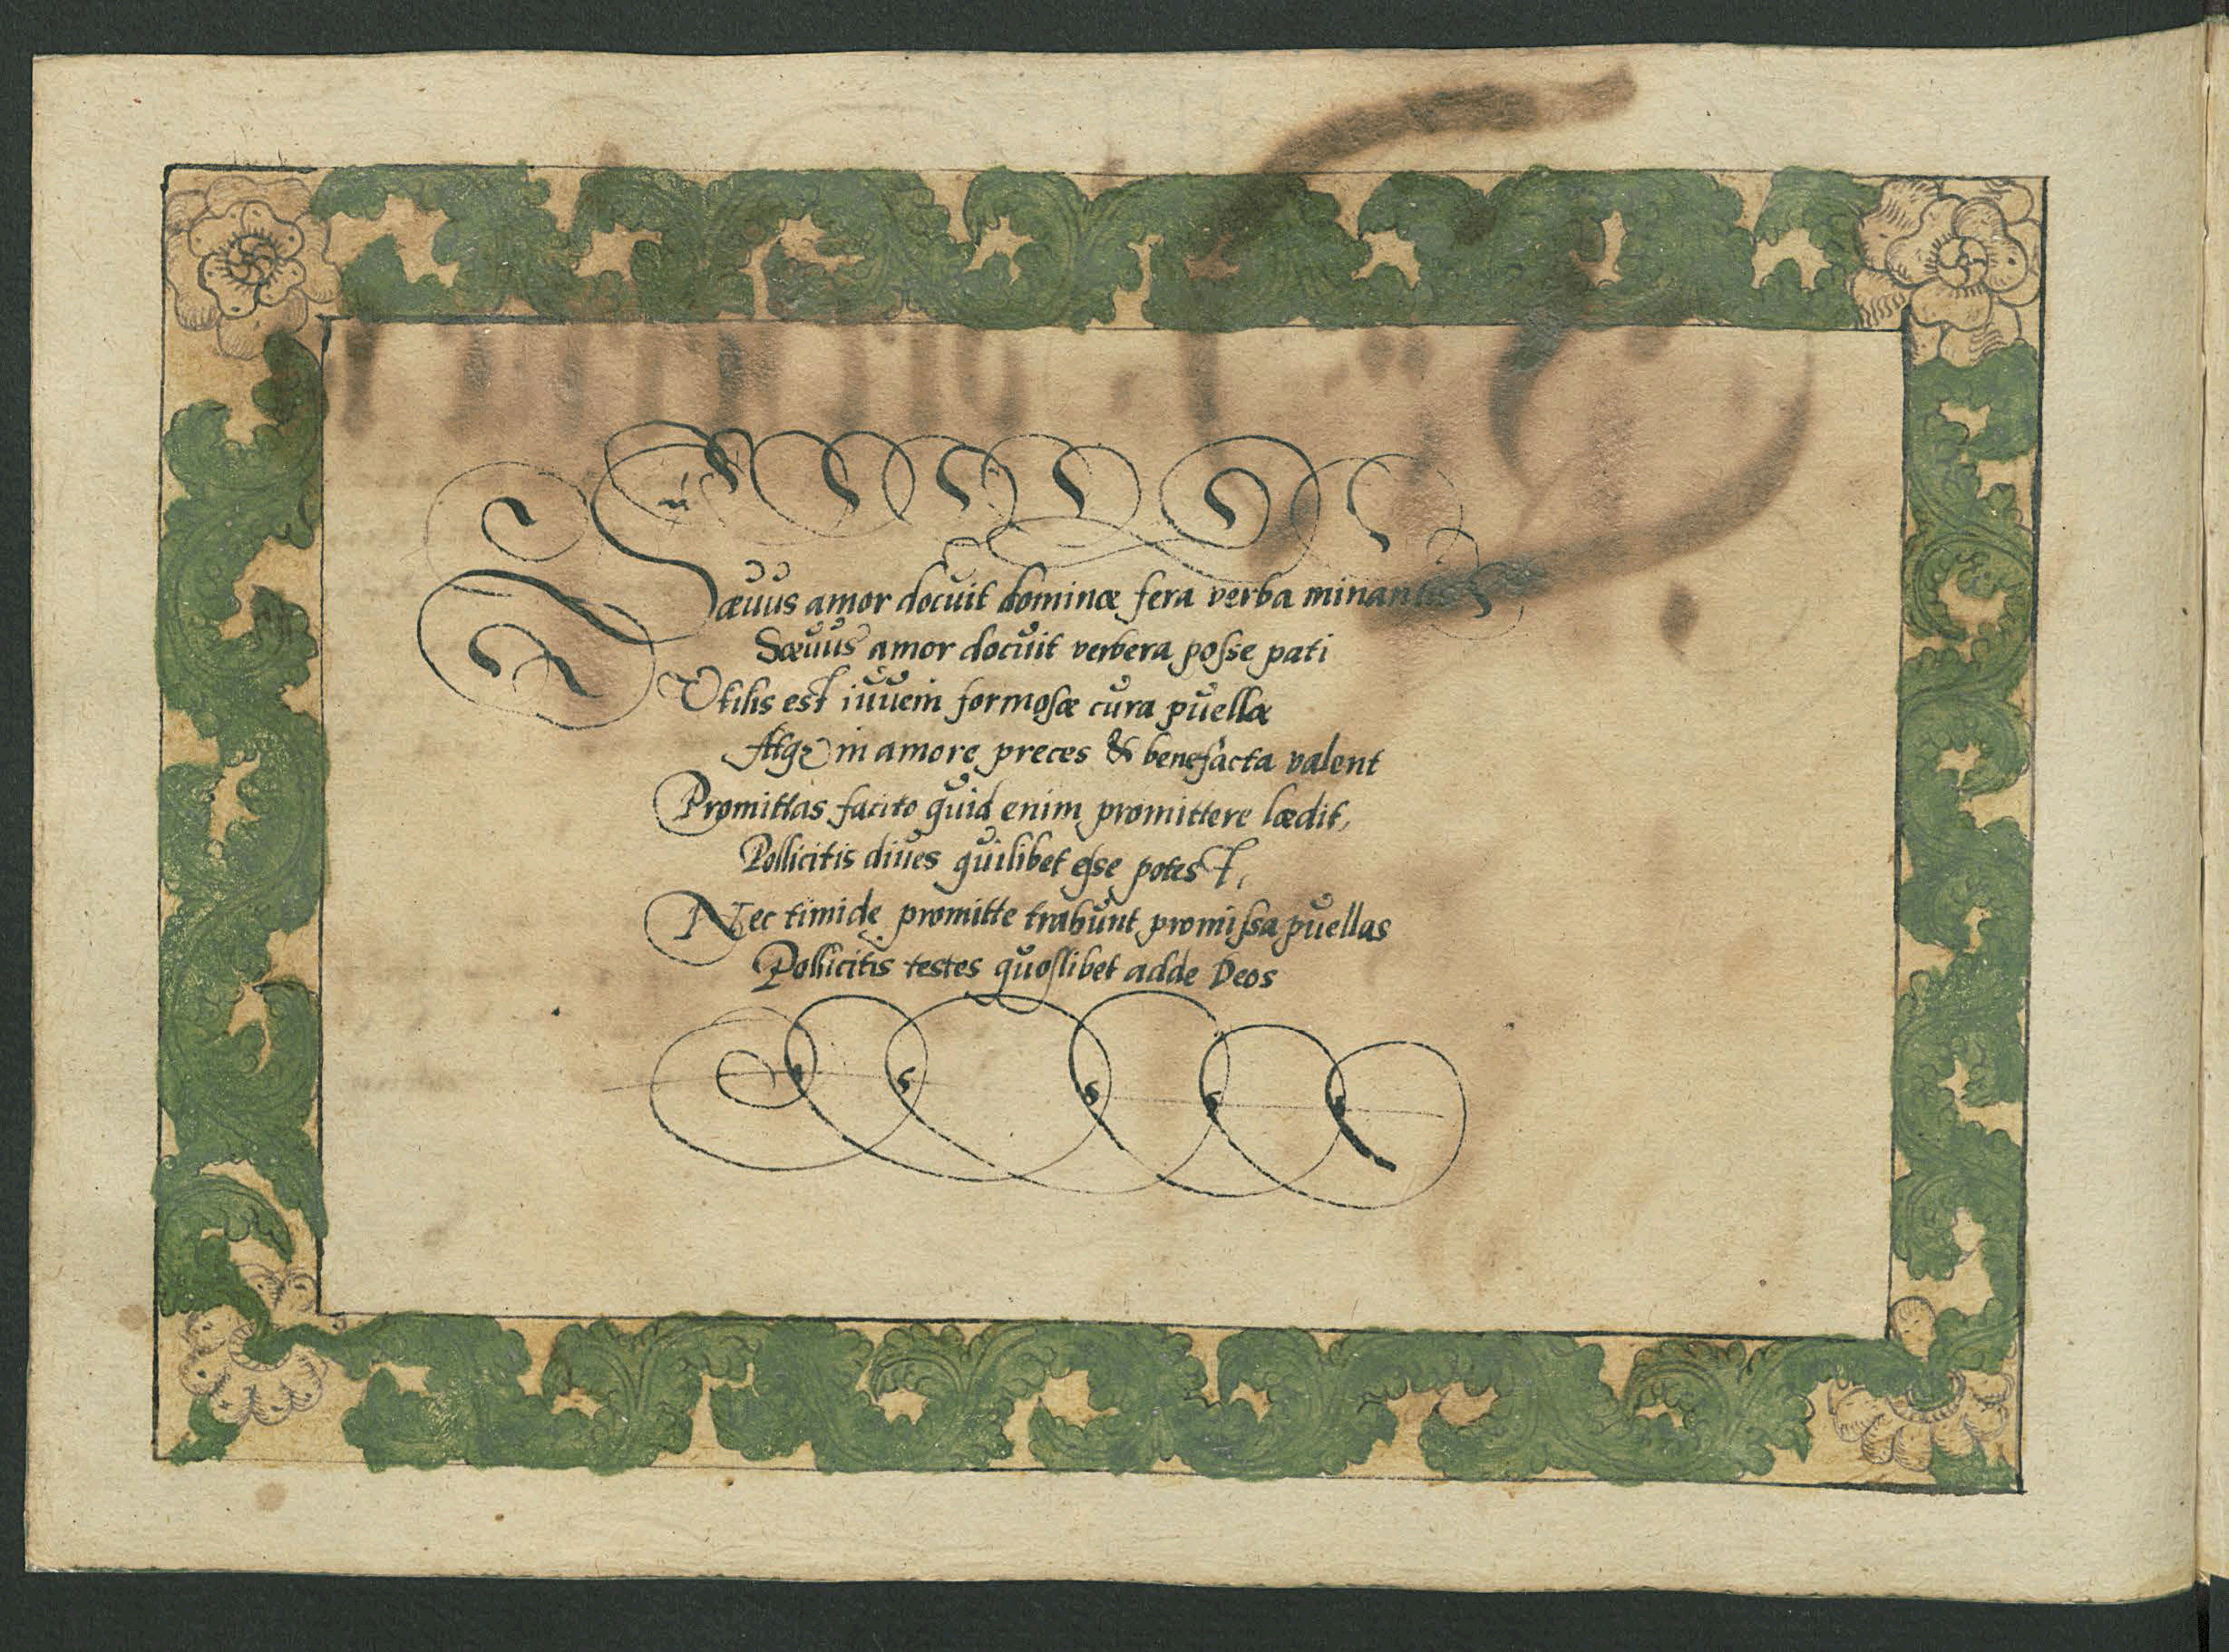 Sæuus amor docuit dominæ fera verba minantis
Sæuus amor docuit verbera poſse pati
Vtilis est iuueni formoſæ cura puellæ
Atqꝫ in amore preces & benefacta valent
Promittas facito quid enim promittere lædit,
Pollicitis diues quilibet eſse potest,
Nec timide promitte trahunt promiſsa puellas
Pollicitis testes quoſlibet adde Deos